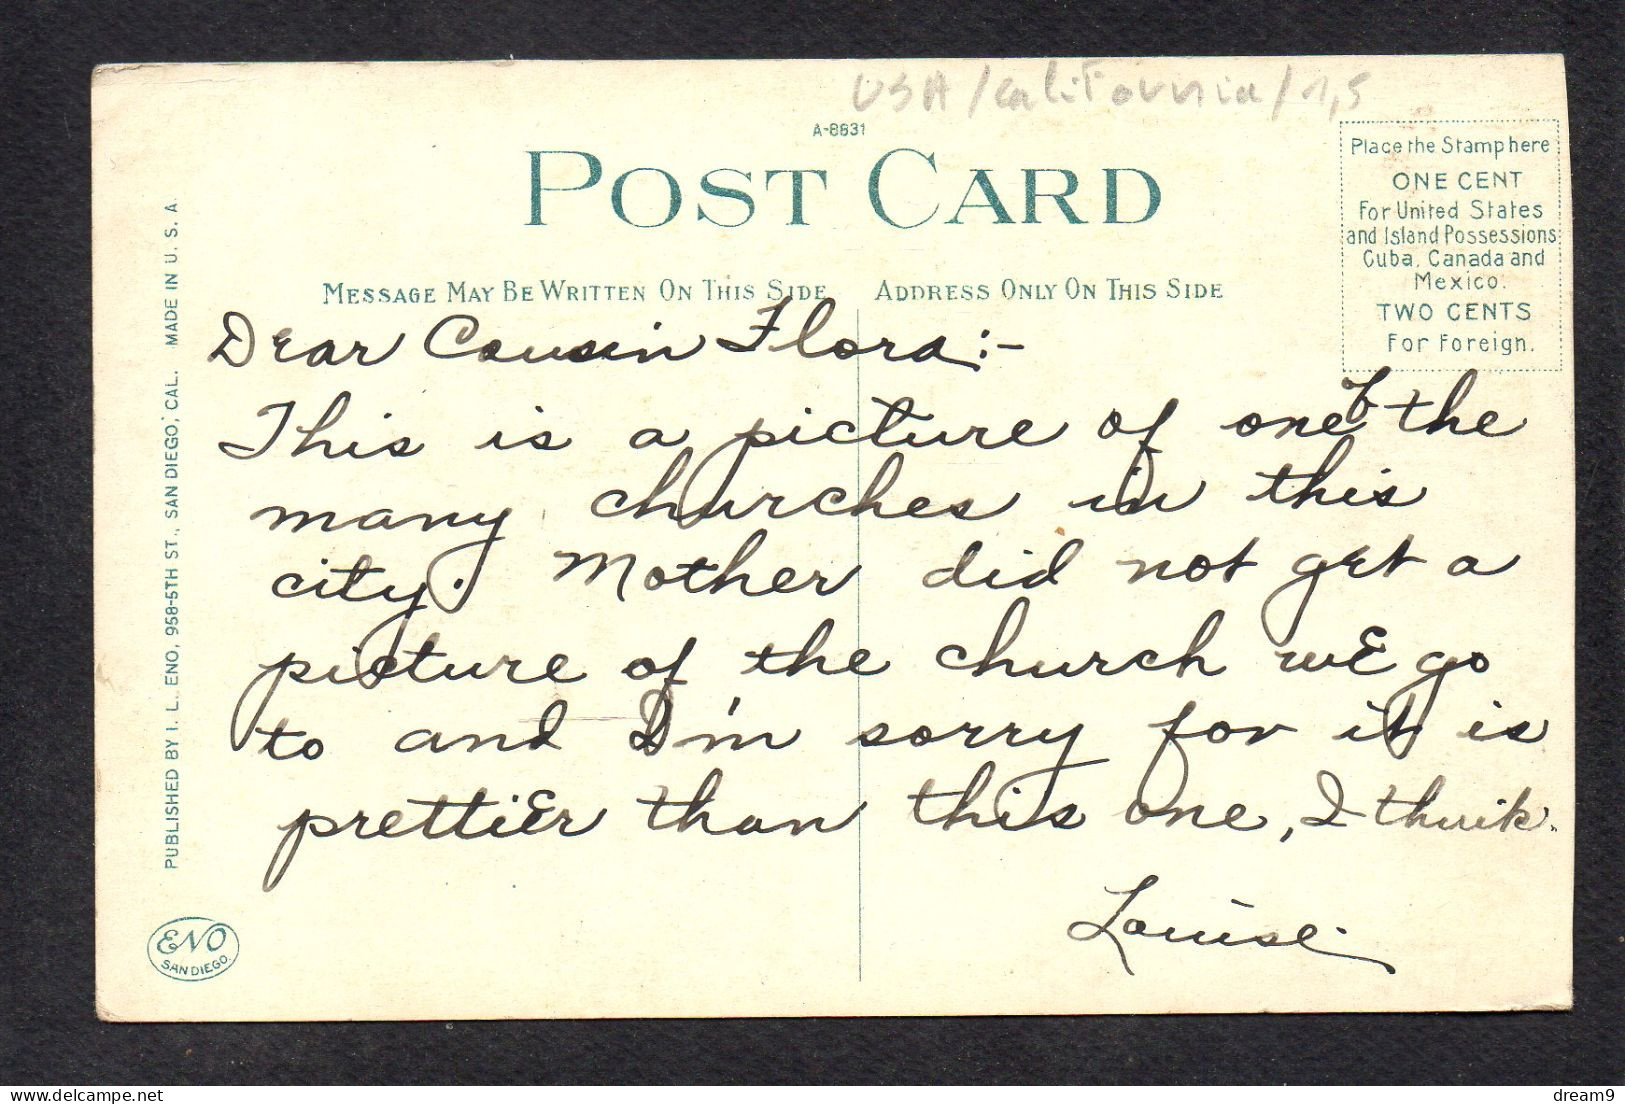 USA / California / 1,5
A-8831
POST CARD
Place the Stamp here
ONE CENT
For United States
and Island Possessions
Cuba, Canada and
Mexico.
TWO CENTS
For Foreign.
MESSAGE MAY BE WRITTEN ON THIS SIDE
ADDRESS ONLY ON THIS SIDE
Dear Cousin Flora:-
This is a picture of one of the
many churches in this
city. Mother did not get a
picture of the church we go
to and I'm sorry for it is
prettier than this one, I think.
Louise.
PUBLISHED BY I. L. ENO, 958-5TH ST., SAN DIEGO, CAL. MADE IN U. S. A.
ENO
SAN DIEGO.
delcampe.net
dream9